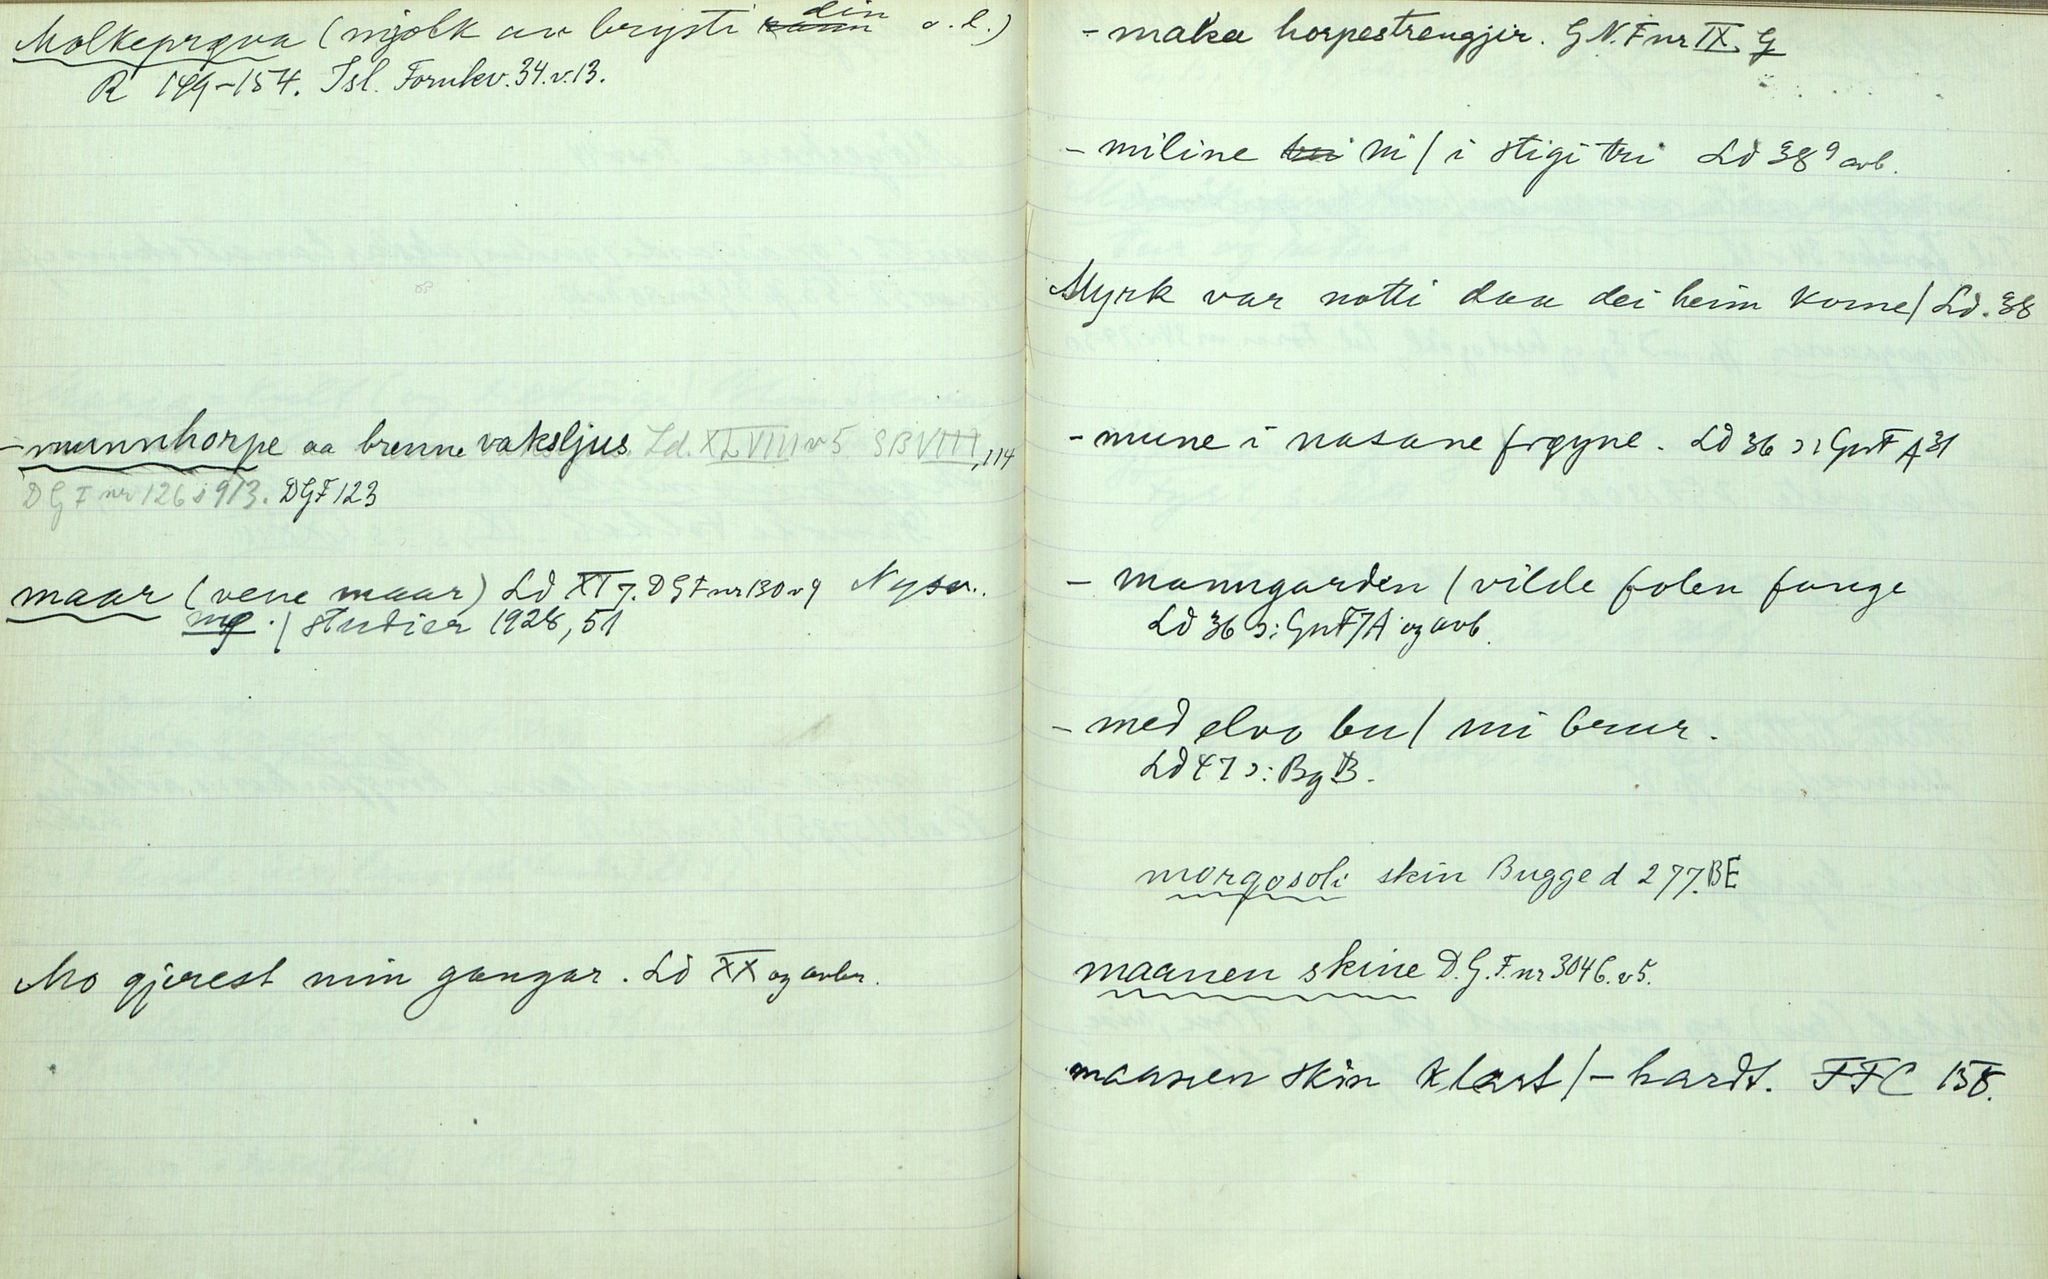 Molkeprøva (mjølk av brysti din o.l.)
R 149-154. Isl. Fornkv. 34.v.13.
- munnhorpe aa brenne voksljus. Ld. XLVIII v 5 SB VIII, 114
DGF nr 126 s 913. DGF 123
maar (vene maar) Ld XI 7. DGF nr 130 v 9 Nysv.
studier 1928, 51
Mo gjerest min gangar. Ld XX og avbr.
- maka horpestrengjir. G N.F nr IX. G
- miline ni / i stigi tri Ld 38 9 avb.
Myrk var notti daa dei heim kome / Ld. 38
- mune i nasane frøyne. Ld 36 ɔ: GnF A 31
- manngarden / vilde folen fange
Ld 36 ɔ: GnF 7A og avb.
- med elvo bu / mi brur.
Ld 47 ɔ: Bg B.
morgosoli skin Bugge d 277. BE
maanen skine D.G.F. nr 304 b. v5.
maanen skin klart / - hardt. FFC 158.